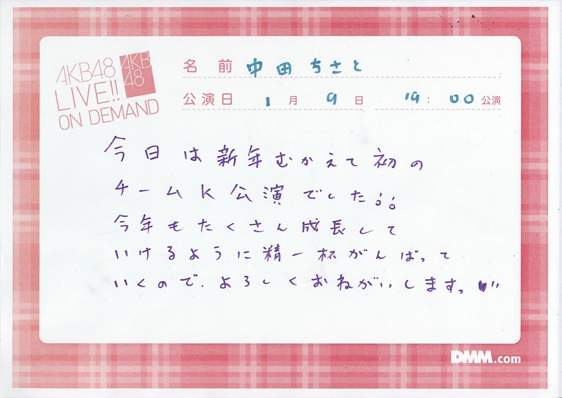 AKB48
LIVE!!
ON DEMAND
AKB
48
名前 中田ちさと
公演日 1月9日 19:00公演
今日は新年むかえて初の
チームK公演でした!!
今年もたくさん成長して
いけるように精一杯がんばって
いくので、よろしくおねがいします。
DMM.com